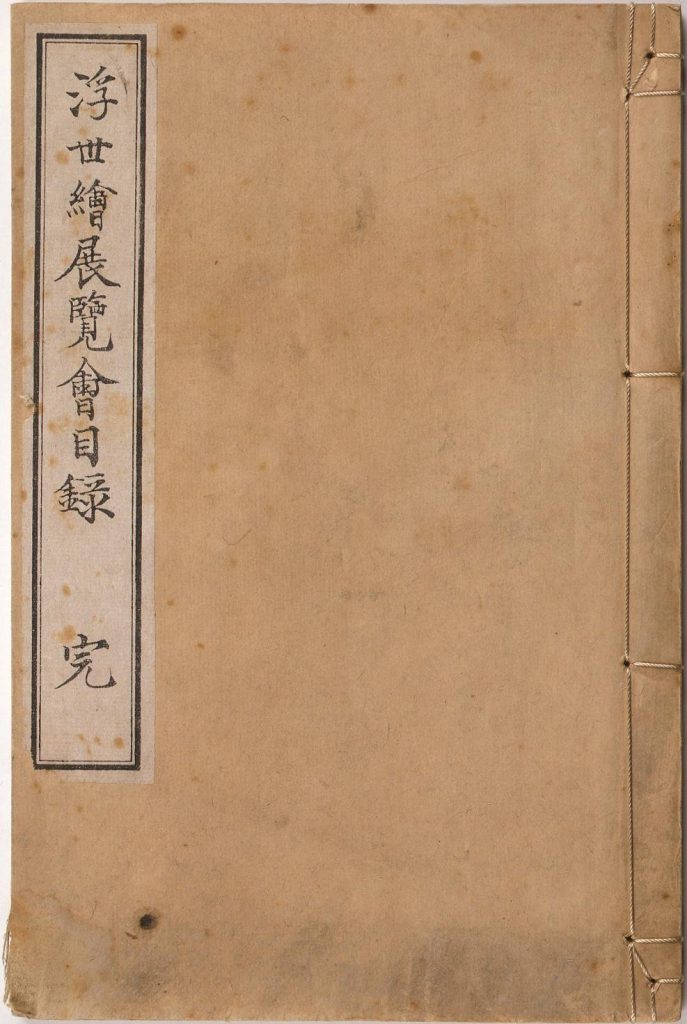 浮世繪展覽會目錄　完